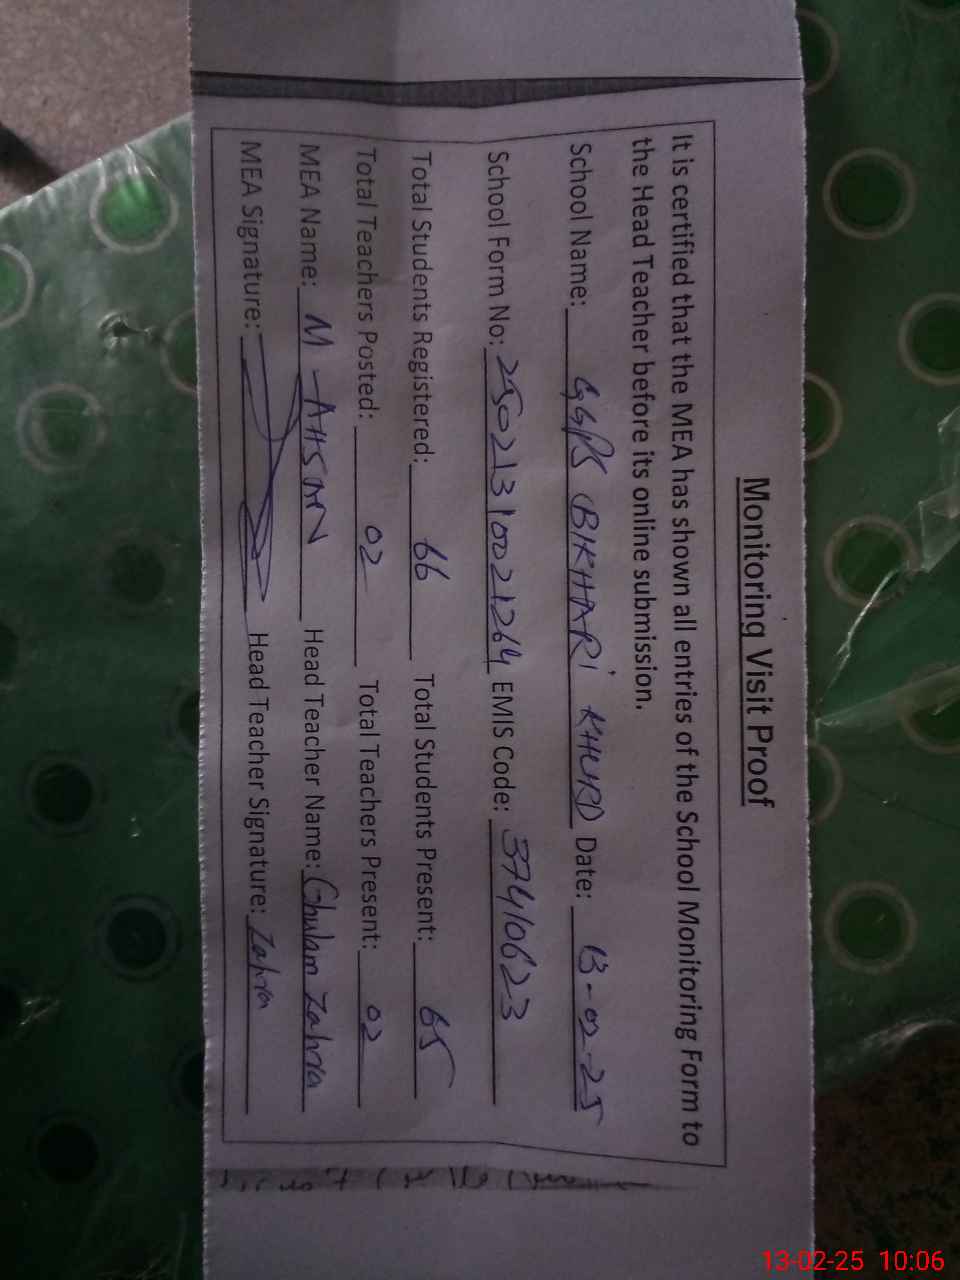 Monitoring Visit Proof
It is certified that the MEA has shown all entries of the School Monitoring Form to
the Head Teacher before its online submission.
School Name: GGPS BIKHARI KHURD Date: 13-02-25
School Form No: 2502131021264 EMIS Code: 37410623
Total Students Registered: 66 Total Students Present: 65
Total Teachers Posted: 02 Total Teachers Present: 02
MEA Name: M-AHSAN Head Teacher Name: Ghulam Zahra
MEA Signature: Head Teacher Signature: Zahra
13-02-25 10:06